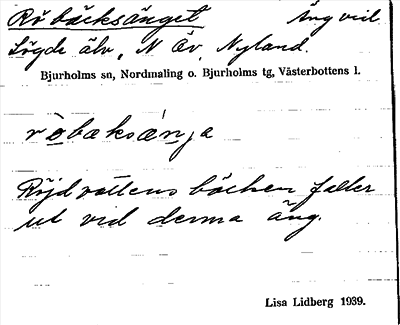 Röbäcksänget Äng vid
Lögde älv, N Öv. Nyland.
Bjurholms sn, Nordmaling o. Bjurholms tg, Västerbottens l.
röbæksæŋa
Röjdvattens bäcken faller
ut vid denna äng.
Lisa Lidberg 1939.